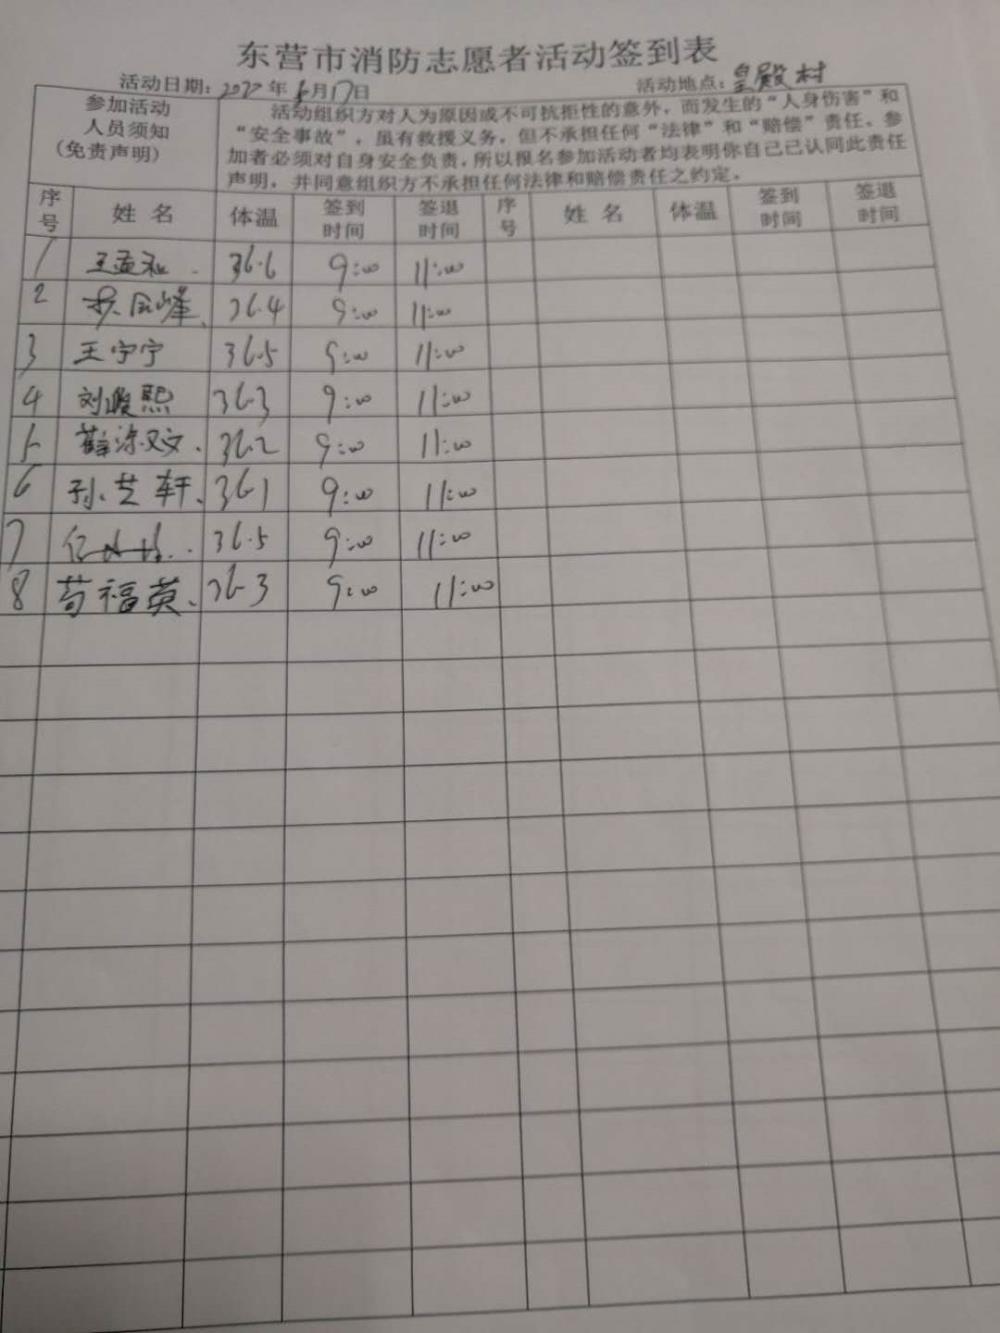 东营市消防志愿者活动签到表
活动日期：2022年6月17日 活动地点：皇殿村
参加活动人员须知（免责声明）
活动组织方对人为原因或不可抗拒性的意外，而发生的“人身伤害”和
“安全事故”，虽有救援义务，但不承担任何“法律”和“赔偿”责任。参
加者必须对自身安全负责，所以报名参加活动者均表明你自己已认同此责任
声明，并同意组织方不承担任何法律和赔偿责任之约定。
序号 姓名 体温 签到时间 签退时间 序号 姓名 体温 签到时间 签退时间
1 36.6 9:00 11:00
2 36.4 9:00 11:00
3 王宁宁 36.5 9:00 11:00
4 刘峻熙 36.3 9:00 11:00
5 36.2 9:00 11:00
6 孙芝轩 36.1 9:00 11:00
7 36.5 9:00 11:00
8 苟福英 36.3 9:00 11:00